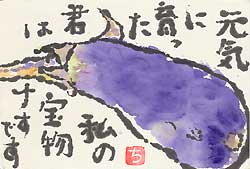 元気
に
育っ
た
君
は
私の
宝物
です
ち